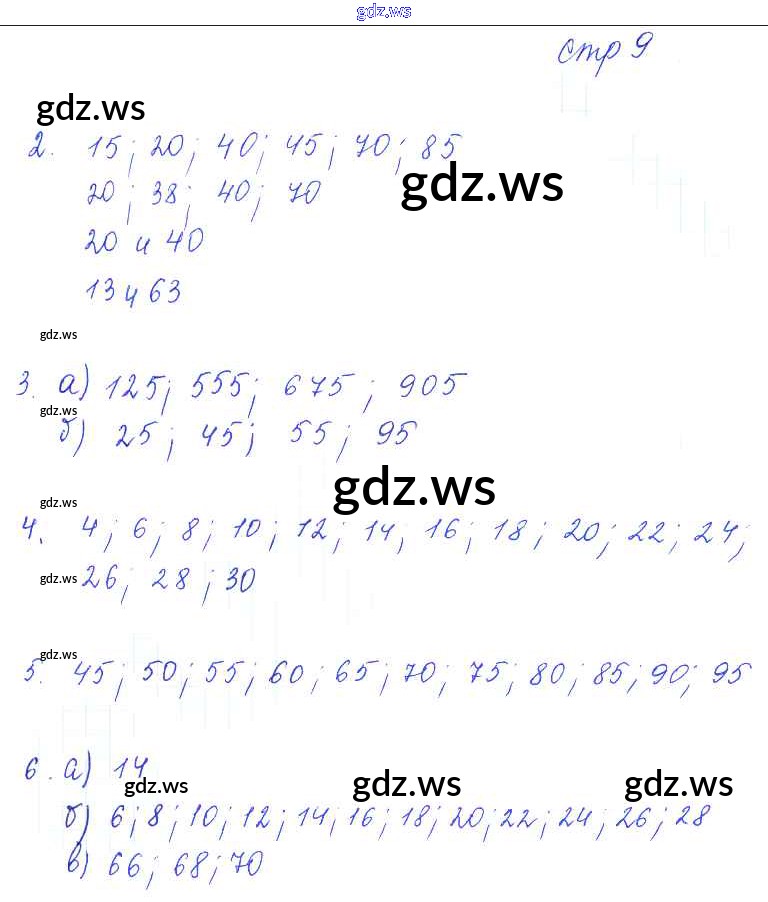 gdz.ws
стр 9
gdz.ws
2. 15; 20; 40; 45; 70; 85
gdz.ws
20; 38; 40; 70
20 и 40
13 и 63
gdz.ws
3. а) 125; 555; 675; 905
gdz.ws
б) 25; 45; 55; 95
gdz.ws
gdz.ws
4. 4; 6; 8; 10; 12; 14; 16; 18; 20; 22; 24;
gdz.ws
26; 28; 30
gdz.ws
5. 45; 50; 55; 60; 65; 70; 75; 80; 85; 90; 95
6. а) 14
gdz.ws gdz.ws gdz.ws
б) 6; 8; 10; 12; 14; 16; 18; 20; 22; 24; 26; 28
в) 66; 68; 70